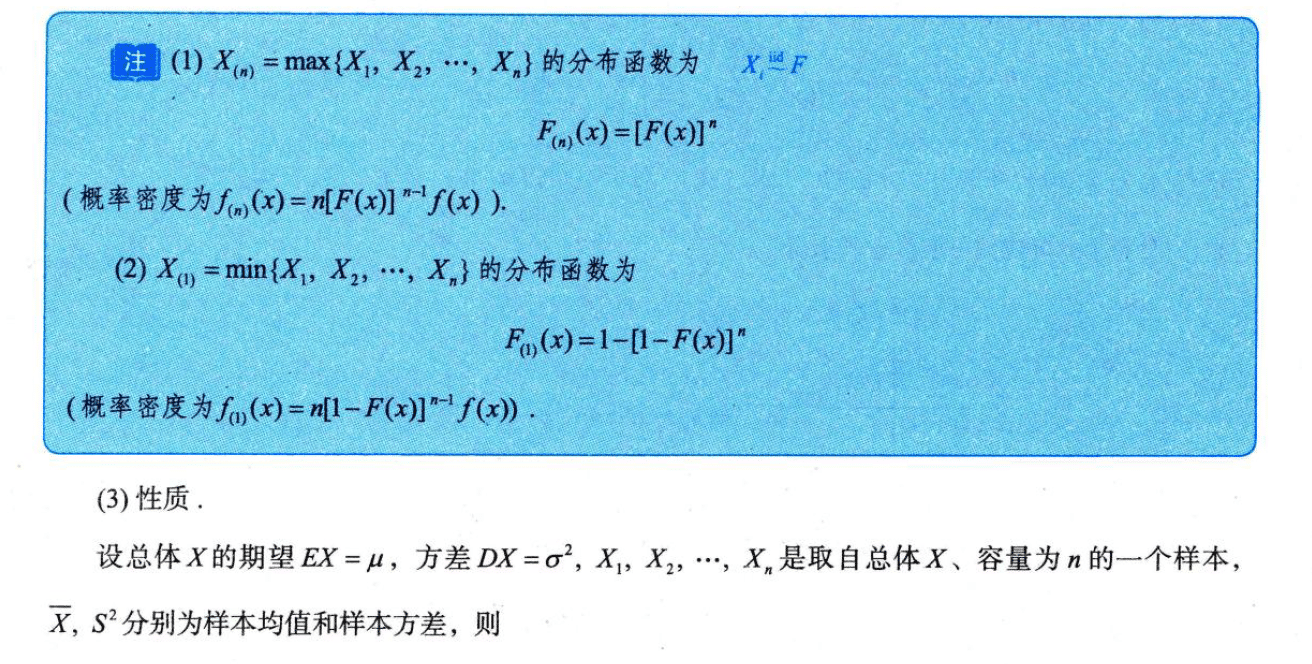 注 (1) X₍ₙ₎ = max{X₁, X₂, ⋯, Xₙ} 的分布函数为 Xᵢ iid~ F
F₍ₙ₎(x) = [F(x)]ⁿ
(概率密度为 f₍ₙ₎(x) = n[F(x)]ⁿ⁻¹ f(x) ).
(2) X₍₁₎ = min{X₁, X₂, ⋯, Xₙ} 的分布函数为
F₍₁₎(x) = 1−[1−F(x)]ⁿ
(概率密度为 f₍₁₎(x) = n[1−F(x)]ⁿ⁻¹ f(x)) .
(3) 性质 .
设总体 X 的期望 EX = μ, 方差 DX = σ², X₁, X₂, ⋯, Xₙ 是取自总体 X、容量为 n 的一个样本,
X̄, S² 分别为样本均值和样本方差, 则